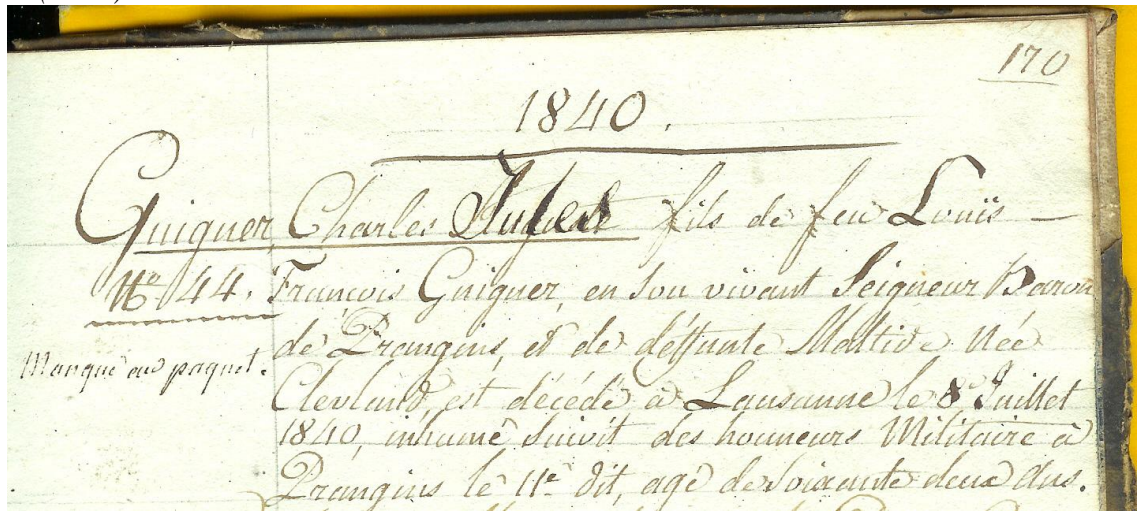 170
1840.
Guiguer, Charles Jules fils de feu Louis —
No 44. François Guiguer, en son vivant Seigneur Baron
Manque au paquet. de Prangins, et de déffunte Maltide Née
Clevland, est décédé à Lausanne le 8e Juillet
1840, inhumé suivit des honneurs Militaire à
Prangins le 11e dit, agé de soixante deux ans.